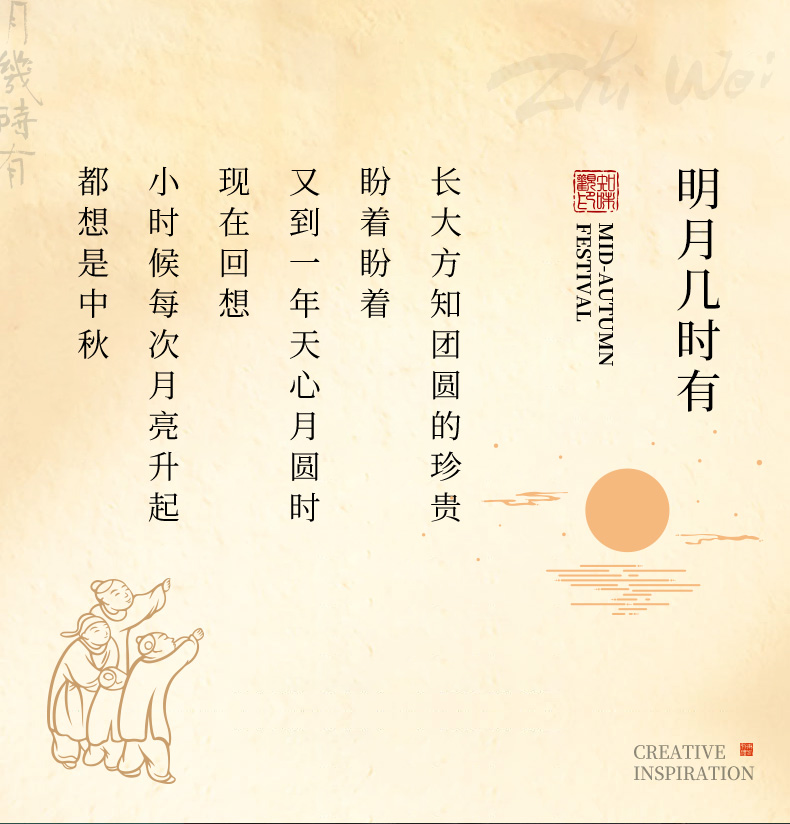 明月几时有
MID-AUTUMN
FESTIVAL
长大方知团圆的珍贵
盼着盼着
又到一年天心月圆时
现在回想
小时候每次月亮升起
都想是中秋
Zhi Wei
月幾時有
CREATIVE
INSPIRATION